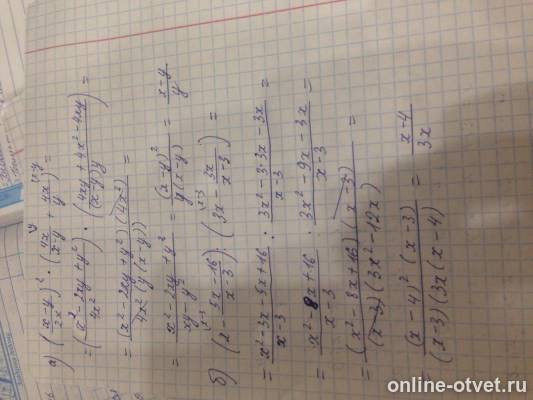 а) ((x-y)/2x)² · (4x/(x-y) + 4x/y) =
= ((x²-2xy+y²)/4x²) · ((4xy+4x²-4xy)/((x-y)y)) =
= (x²-2xy+y²)(4x²)/(4x²(y(x-y))) =
= (x²-2xy+y²)/(xy-y²) = (x-y)²/(y(x-y)) = (x-y)/y
б) (x - (5x-16)/(x-3)) : (3x - 3x/(x-3)) =
= (x²-3x-5x+16)/(x-3) : (3x²-3·3x-3x)/(x-3) =
= (x²-8x+16)/(x-3) : (3x²-9x-3x)/(x-3) =
= (x²-8x+16)(x-3)/((x-3)(3x²-12x)) =
= (x-4)²(x-3)/((x-3)(3x(x-4)) = (x-4)/3x
online-otvet.ru